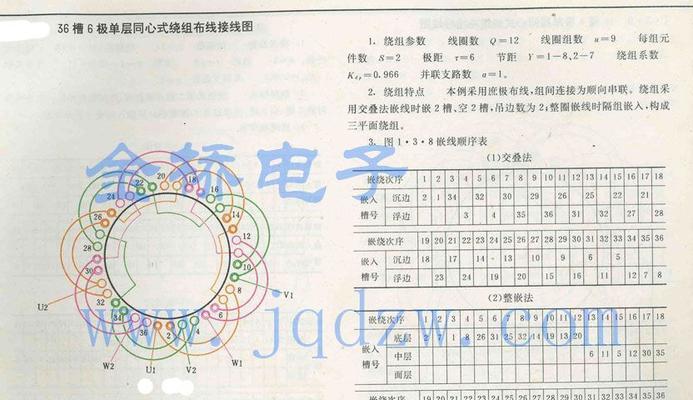 36 槽 6 极单层同心式绕组布线接线图
1. 绕组参数 线圈数 Q=12 线圈组数 u=9 每组元
件数 S=2 极距 τ=6 节距 Y=1—8,2—7 绕组系数
Kdp=0.966 并联支路数 a=1。
2. 绕组特点 本例采用庶极布线,组间连接为顺向串联。绕组采
用交叠法嵌线时嵌 2 槽、空 2 槽,吊边数为 2;整圈嵌线时隔组嵌入,构成
三平面绕组。
3. 图1·3·8嵌线顺序表
(1)交叠法
嵌绕次序 1 2 3 4 5 6 7 8 9 10 11 12 13 14 15 16 17 18
嵌入槽号 沉边 2 1 34 32 30 29 26 25 22 21
浮边 3 4 35 36 31 32 27 28
嵌绕次序 19 20 21 22 23 24 25 26 27 28 29 30 31 32 33 34 35 36
嵌入槽号 沉边 18 17 14 13 10 9 6 5
浮边 23 24 19 20 15 16 11 12 7 8
(2)整嵌法
嵌绕次序 1 2 3 4 5 6 7 8 9 10 11 12 13 14 15 16 17 18
嵌入槽号 底层 2 7 1 8 26 31 25 32 14 19 13 20
中层 6 11 5 12 30 35
面层
嵌绕次序 19 20 21 22 23 24 25 26 27 28 29 30 31 32 33 34 35 36
20
18
22
16
24
26
14
28
12
30
10
32
8
34
6
36
2
4
U2
V1
W2
U1
V2
W1
金桥电子
www.jqdzw.com